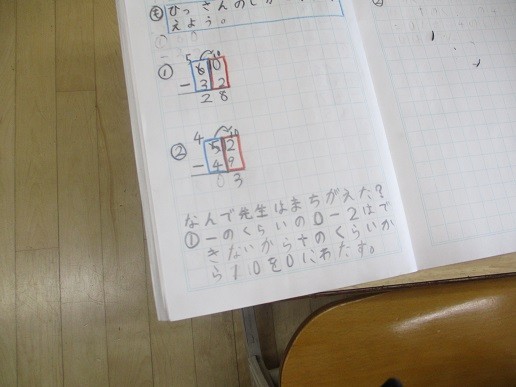 め ひっさんのしか
えよう。
①
5 10
6 0
- 3 2
2 8
②
4 10
5 2
- 4 9
0 3
なんで先生はまちがえた?
①一のくらいの0-2はで
きないから十のくらいか
ら10を0にわたす。